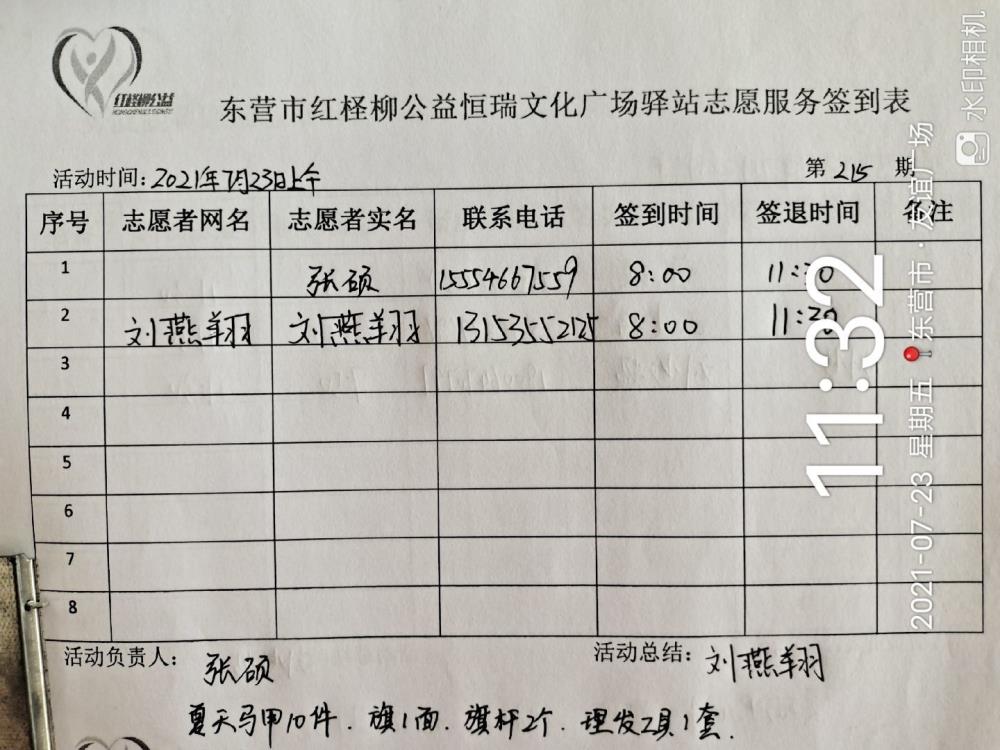 红柽柳公益
东营市红柽柳公益恒瑞文化广场驿站志愿服务签到表
活动时间: 2021年7月23日上午 第 215 期
序号 志愿者网名 志愿者实名 联系电话 签到时间 签退时间 备注
1 张硕 15554667559 8:00 11:30
2 刘燕翔 刘燕翔 13153552125 8:00 11:30
3
4
5
6
7
8
活动负责人: 张硕 活动总结: 刘燕翔
夏天马甲10件. 旗1面. 旗杆2个. 理发工具1套.
11:32
2021-07-23 星期五 东营市·友谊广场
水印相机